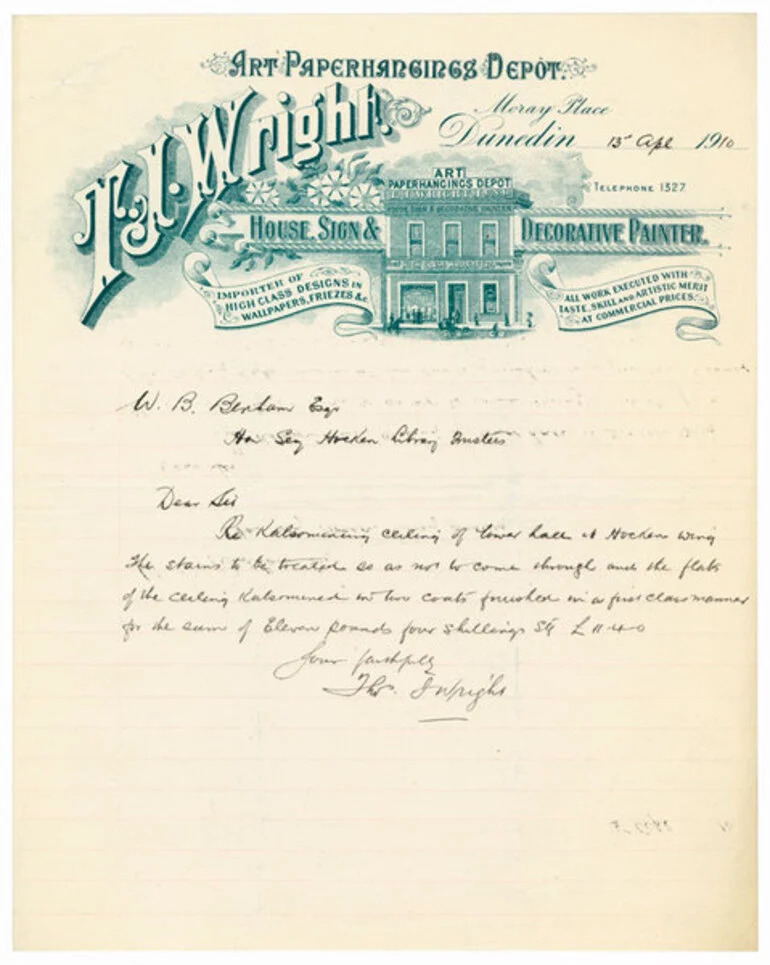 ART PAPERHANGINGS DEPÔT.
T. J. Wright.
Moray Place
Dunedin 13th Apl 1910
TELEPHONE 1327
ART
PAPERHANGINGS DEPOT
HOUSE, SIGN & DECORATIVE PAINTER.
IMPORTER OF
HIGH CLASS DESIGNS IN
WALLPAPERS, FRIEZES &c.
ALL WORK EXECUTED WITH
TASTE, SKILL AND ARTISTIC MERIT
AT COMMERCIAL PRICES.
W. B. Benham Esq
Hon Secy Hocken Library Trustees
Dear Sir
Re Kalsomining ceiling of lower hall at Hocken wing
The stains to be treated so as not to come through and the flats
of the ceiling Kalsomined in two coats finished in a first class manner
for the sum of Eleven pounds four shillings Stg £ 11-4-0
Your faithfully
Thos. J Wright